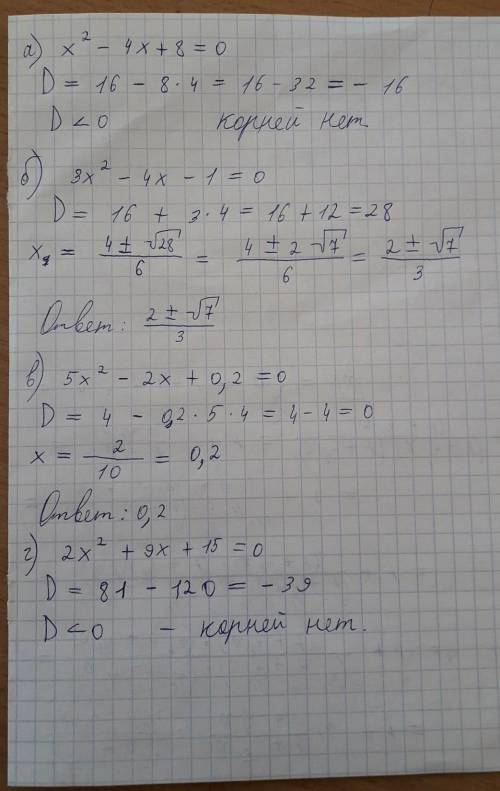 а) x² - 4x + 8 = 0
D = 16 - 8·4 = 16 - 32 = - 16
D < 0 корней нет
б) 3x² - 4x - 1 = 0
D = 16 + 3·4 = 16 + 12 = 28
x = (4 ± √28)/6 = (4 ± 2√7)/6 = (2 ± √7)/3
Ответ: (2 ± √7)/3
в) 5x² - 2x + 0,2 = 0
D = 4 - 0,2·5·4 = 4 - 4 = 0
x = 2/10 = 0,2
Ответ: 0,2
г) 2x² + 9x + 15 = 0
D = 81 - 120 = - 39
D < 0 - корней нет.